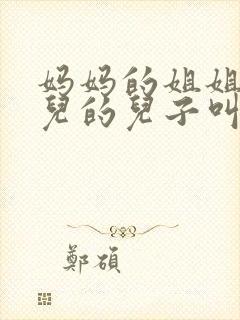 妈妈的姐姐
兒的兒子叫
鄭碩